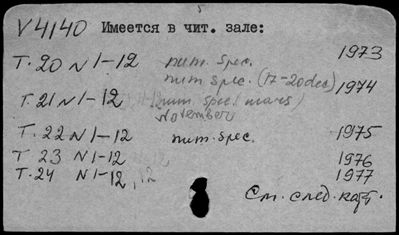 V4140 Имеется в чит. зале:
Т. 20 N 1-12 num. spec. 1973
num spec. (17-20 dec) 1974
Т. 21 N 1-12 num. spec. (mars)
November
Т. 22 N 1-12 num. spec. 1975
Т. 23 N 1-12 1976
Т. 24 N 1-12, 12 1977
См. след. карт.